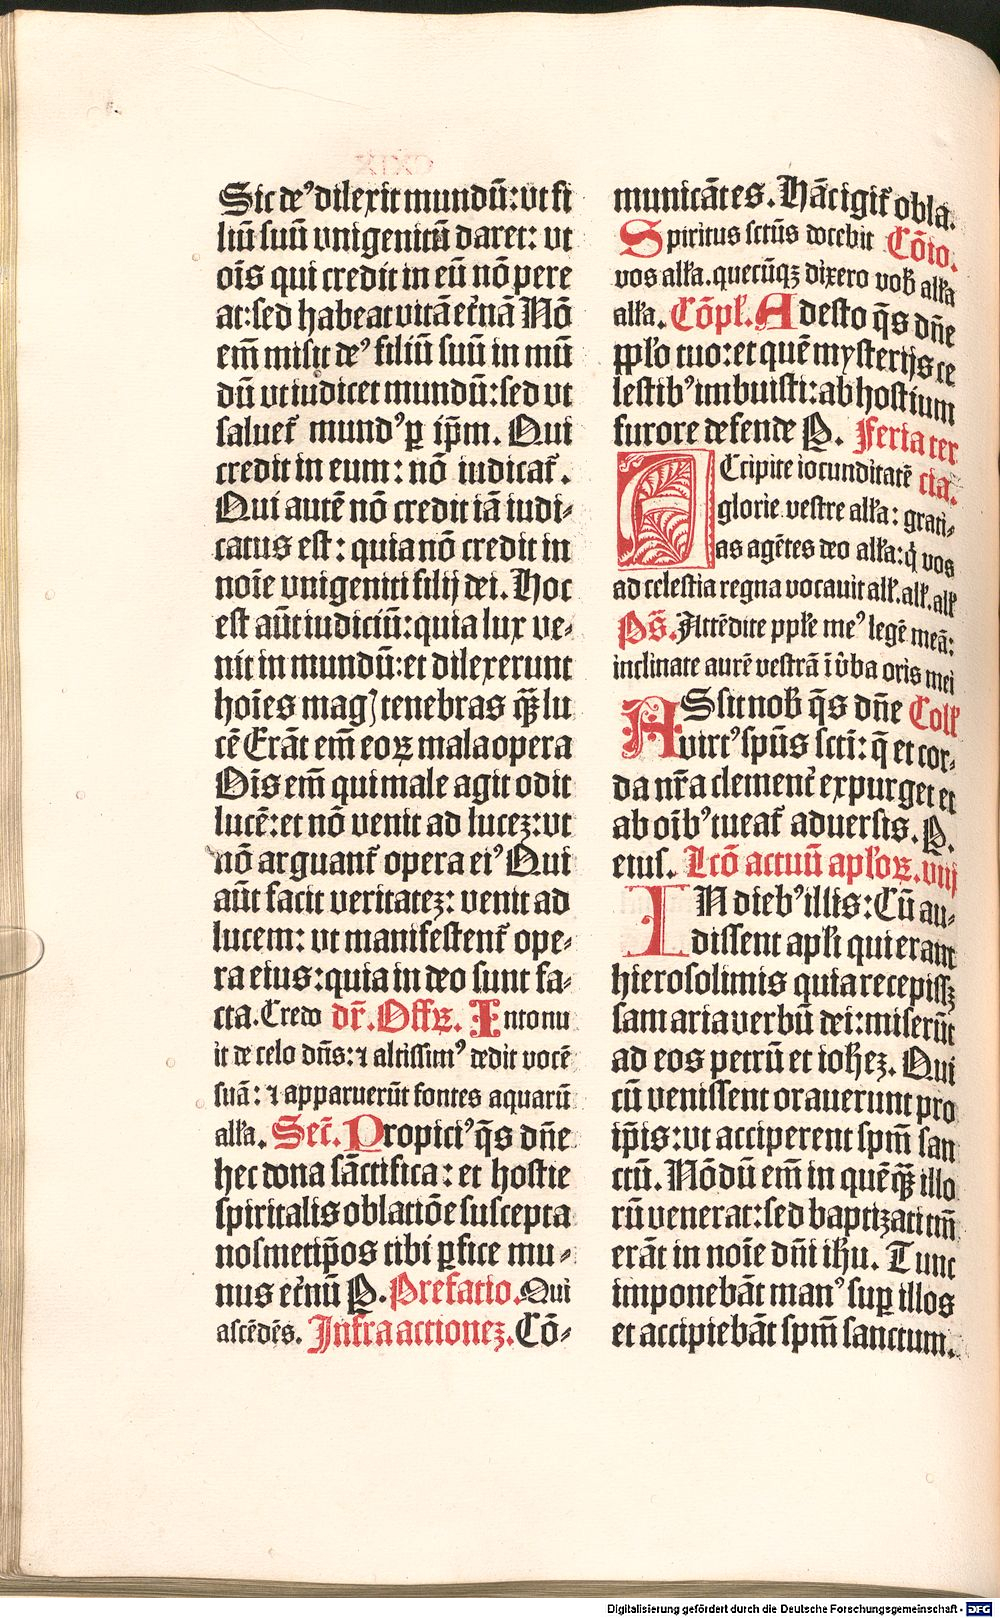 Sic deꝰ dilexit mundū: vt fi
liū suū vnigenitū daret: vt
oīs qui credit in eū nō pere
at: sed habeat vitā et̄nā Nō
em̄ misit deꝰ filiū suū in mū
dū vt iudicet mundū: sed vt
saluet̄ mundꝰ ꝑ ip̄m. Qui
credit in eum: nō iudicat̄.
Qui autē nō credit iā iudi⸗
catus est: quia nō credit in
noīe vnigeniti filij dei. Hoc
est aūt iudiciū: quia lux ve⸗
nit in mundū: et dilexerunt
hoīes magꝭ tenebras qꝫ̄ lu
cē Erāt em̄ eoꝝ mala opera
Oīs em̄ qui male agit odit
lucē: et nō venit ad luceꝫ: vt
nō arguant̄ opera eiꝰ Qui
aūt facit veritateꝫ: venit ad
lucem: vt manifestent̄ ope⸗
ra eius: quia in deo sunt fa⸗
cta. Credo dr̄. Offꝝ. Intonu
it de celo dn̄s: ⁊ altissimꝰ dedit vocē
suā: ⁊ apparuerūt fontes aquarū
alła. Sec̄. Propiciꝰ q̄s dn̄e
hec dona sāctifica: et hostie
spiritalis oblatiōe suscepta
nosmetip̄os tibi ꝑfice mu⸗
nus et̄nū P. Prefatio. Qui
ascēdēs. Infra actioneꝫ. Cō⸗
municātes. Hāc igit̄ obla.
Spiritus sctūs docebit Cōio.
vos alła. quecūqꝫ dixero vob̄ alła
alła. Cōpł. Adesto q̄s dn̄e
pp̄lo tuo: et quē mysterijs ce
lestibꝰ imbuisti: ab hostium
furore defende P. Feria ter
Ccipite iocunditatē cia.
glorie vestre alła: grati⸗
as agētes deo alła: q̇ vos
ad celestia regna vocauit alł. alł. alł
Ps̄. Attēdite pple meꝰ legē meā:
inclinate aurē vestrā ī v̄ba oris mei
ASsit nob̄ q̄s dn̄e Colł
virtꝰ spūs scti: q̄ et cor⸗
da nr̄a clement̄ expurget et
ab oībꝰ tueat̄ aduersis. P.
eius. Lcō actuū apl̄oꝝ. viij
IN diebꝰ illis: Cū au⸗
dissent apl̄i qui erant
hierosolimis quia recepissꝫ
samaria verbū dei: miserūt
ad eos petrū et ioħeꝫ. Qui
cū venissent orauerunt pro
ip̄is: vt acciperent spm̄ san
ctū. Nōdū em̄ in quēqꝫ̄ illo
rū venerat: sed baptizati tm̄
erāt in noīe dn̄i iħu. Tunc
imponebāt manꝰ suꝑ illos
et accipiebāt spm̄ sanctum.
Digitalisierung gefördert durch die Deutsche Forschungsgemeinschaft - DFG